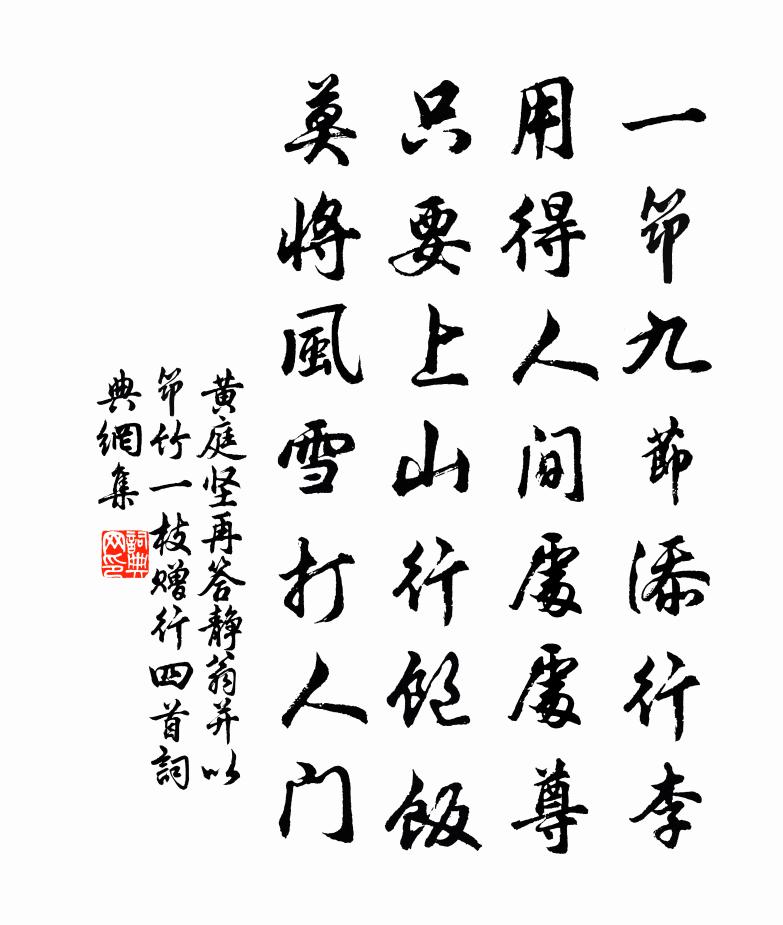 一筇九節添行李
用得人間處處尊
只要上山行飽飯
莫將風雪打人门
黄庭坚再答静翁并以
筇竹一枝赠行四首詞
典網集
詞典
网印